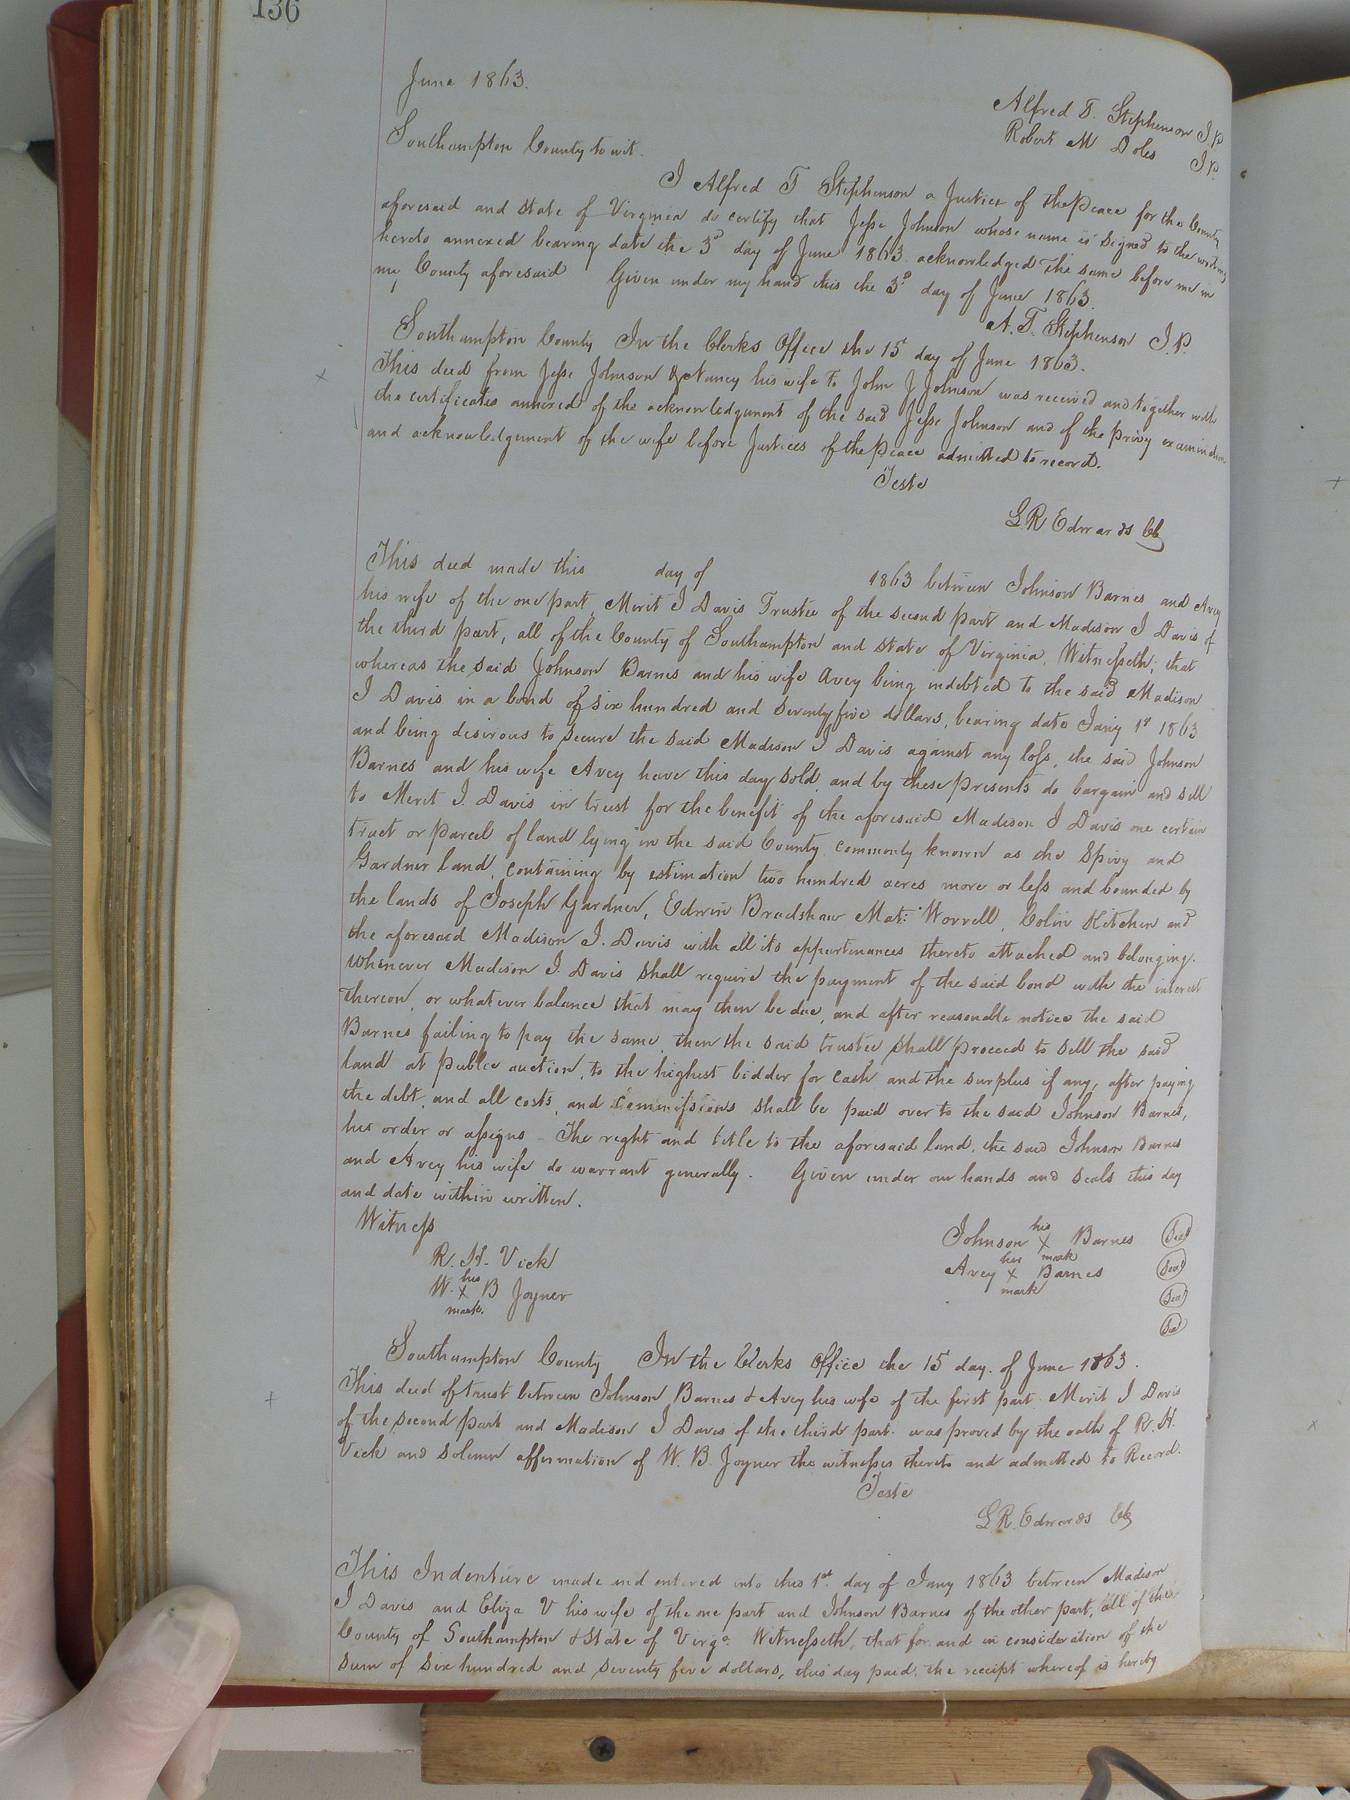 136
June 1863.
Alfred T. Stephenson J.P.
Robert M Doles J.P.
Southampton County to wit.
I Alfred T Stephenson a Justice of the Peace for the County
aforesaid and state of Virginia do certify that Jesse Johnson whose name is signed to the writing
hereto annexed bearing date the 3d day of June 1863. acknowledged the same before me in
my County aforesaid Given under my hand this the 3d day of June 1863.
A. T. Stephenson J.P.
Southampton County In the Clerks Office the 15 day of June 1863.
This deed from Jesse Johnson & Nancy his wife to John J Johnson was received and together with
the certificates annexed of the acknowledgment of the said Jesse Johnson and of the privy examination
and acknowledgement of the wife before Justices of the Peace admitted to record.
Teste
L R Edwards Clk
This deed made this day of 1863 between Johnson Barnes and Avey
his wife of the one part, Merit J Davis Trustee of the second part and Madison J Davis of
the third part, all of the County of Southampton and state of Virginia, Witnesseth; that
whereas the said Johnson Barnes and his wife Avey being indebted to the said Madison
J Davis in a bond of six hundred and seventy five dollars, bearing date Jany 1st 1863
and being desirous to secure the said Madison J Davis against any loss, the said Johnson
Barnes and his wife Avey have this day sold, and by these presents do bargain and sell
to Merit J. Davis in trust for the benefit of the aforesaid Madison J Davis one certain
tract or parcel of land lying in the said County commonly known as the Spivy and
Gardner land, containing by estimation two hundred acres more or less and bounded by
the lands of Joseph Gardner, Edwin Bradshaw Mat: Worrell, Colin Kitchen and
the aforesaid Madison J. Davis with all its appurtenances thereto attached and belonging.
Whenever Madison J. Davis shall require the payment of the said bond with the interest
thereon, or whatever balance that may then be due, and after reasonable notice the said
Barnes failing to pay the same, then the said trustee shall proceed to sell the said
land at public auction, to the highest bidder for cash and the surplus if any, after paying
the debt, and all costs, and commissions shall be paid over to the said Johnson Barnes,
his order or assigns - The right and title to the aforesaid land, the said Johnson Barnes
and Avey his wife do warrant generally. Given under our hands and seals this day
and date within written.
Witness
R. H. Vick
W. his x mark. B Joyner
Johnson his x mark Barnes Seal
Avey her x mark Barnes Seal
Seal
Seal
Southampton County In the Clerks Office the 15 day. of June 1863.
This deed of trust between Johnson Barnes & Avey his wife of the first part Merit J Davis
of the second part and Madison J Davis of the third part. was proved by the oath of R. H.
Vick and solemn affirmation of W. B. Joyner the witnesses thereto and admitted to Record.
Teste
L R. Edwards Clk
This Indenture made and entered into this 1st day of Jany 1863 between Madison
J Davis and Eliza V his wife of the one part and Johnson Barnes of the other part, all of the
County of Southampton & State of Virga. Witnesseth, that for and in consideration of the
sum of six hundred and seventy five dollars, this day paid, the receipt whereof is hereby